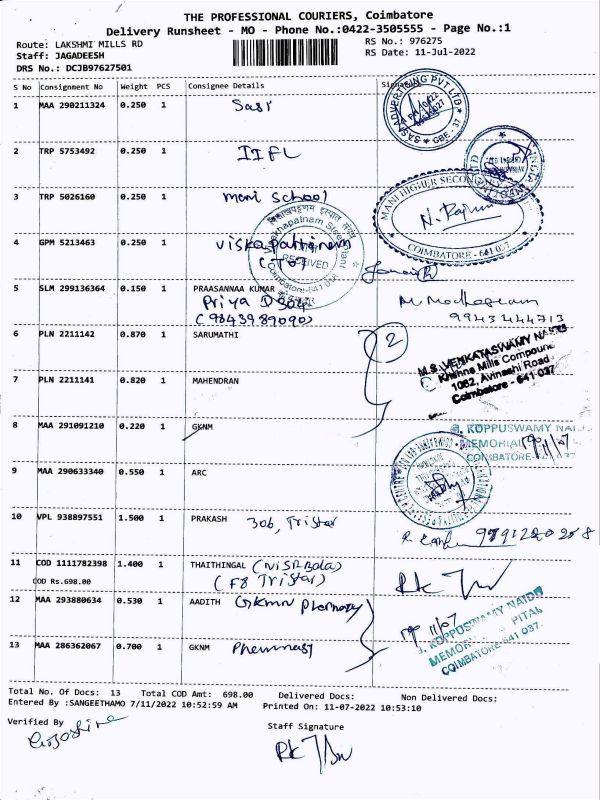 THE PROFESSIONAL COURIERS, Coimbatore
Delivery Runsheet - MO - Phone No.:0422-3505555 - Page No.:1
Route: LAKSHMI MILLS RD
RS No.: 976275
Staff: JAGADEESH
RS Date: 11-Jul-2022
DRS No.: DCJB97627501
S No Consignment No Weight PCS Consignee Details Signature
1 MAA 290211324 0.250 1 Sasi
2 TRP 5753492 0.250 1 IIFL
3 TRP 5026160 0.250 1 mani school
MANI HIGHER SECONDARY
COIMBATORE - 641 037
4 GPM 5213463 0.250 1
RECEIVED
5 SLM 299136364 0.150 1 PRAASANNAA KUMAR
Priya
(9843989090)
9943444713
6 PLN 2211142 0.870 1 SARUMATHI 2
M.S. VENKATASWAMY
Krishna Mills Compound
1082, Avinashi Road
Coimbatore - 641 037
7 PLN 2211141 0.820 1 MAHENDRAN
8 MAA 291091210 0.220 1 GKNM
KUPPUSWAMY
MEMORIAL
COIMBATORE
9 MAA 290633340 0.550 1 ARC
10 VPL 938897551 1.500 1 PRAKASH 306, Tristar
11 COD 1111782398 1.400 1 THAITHINGAL
COD Rs.698.00
(F8 Tristar)
12 MAA 293880634 0.530 1 AADITH
11/07
KUPPUSWAMY NAIDU
COIMBATORE-641 037.
13 MAA 286362067 0.700 1 GKNM
Total No. Of Docs: 13 Total COD Amt: 698.00 Delivered Docs: Non Delivered Docs:
Entered By :SANGEETHAMO 7/11/2022 10:52:59 AM Printed On: 11-07-2022 10:53:10
Verified By
Staff Signature